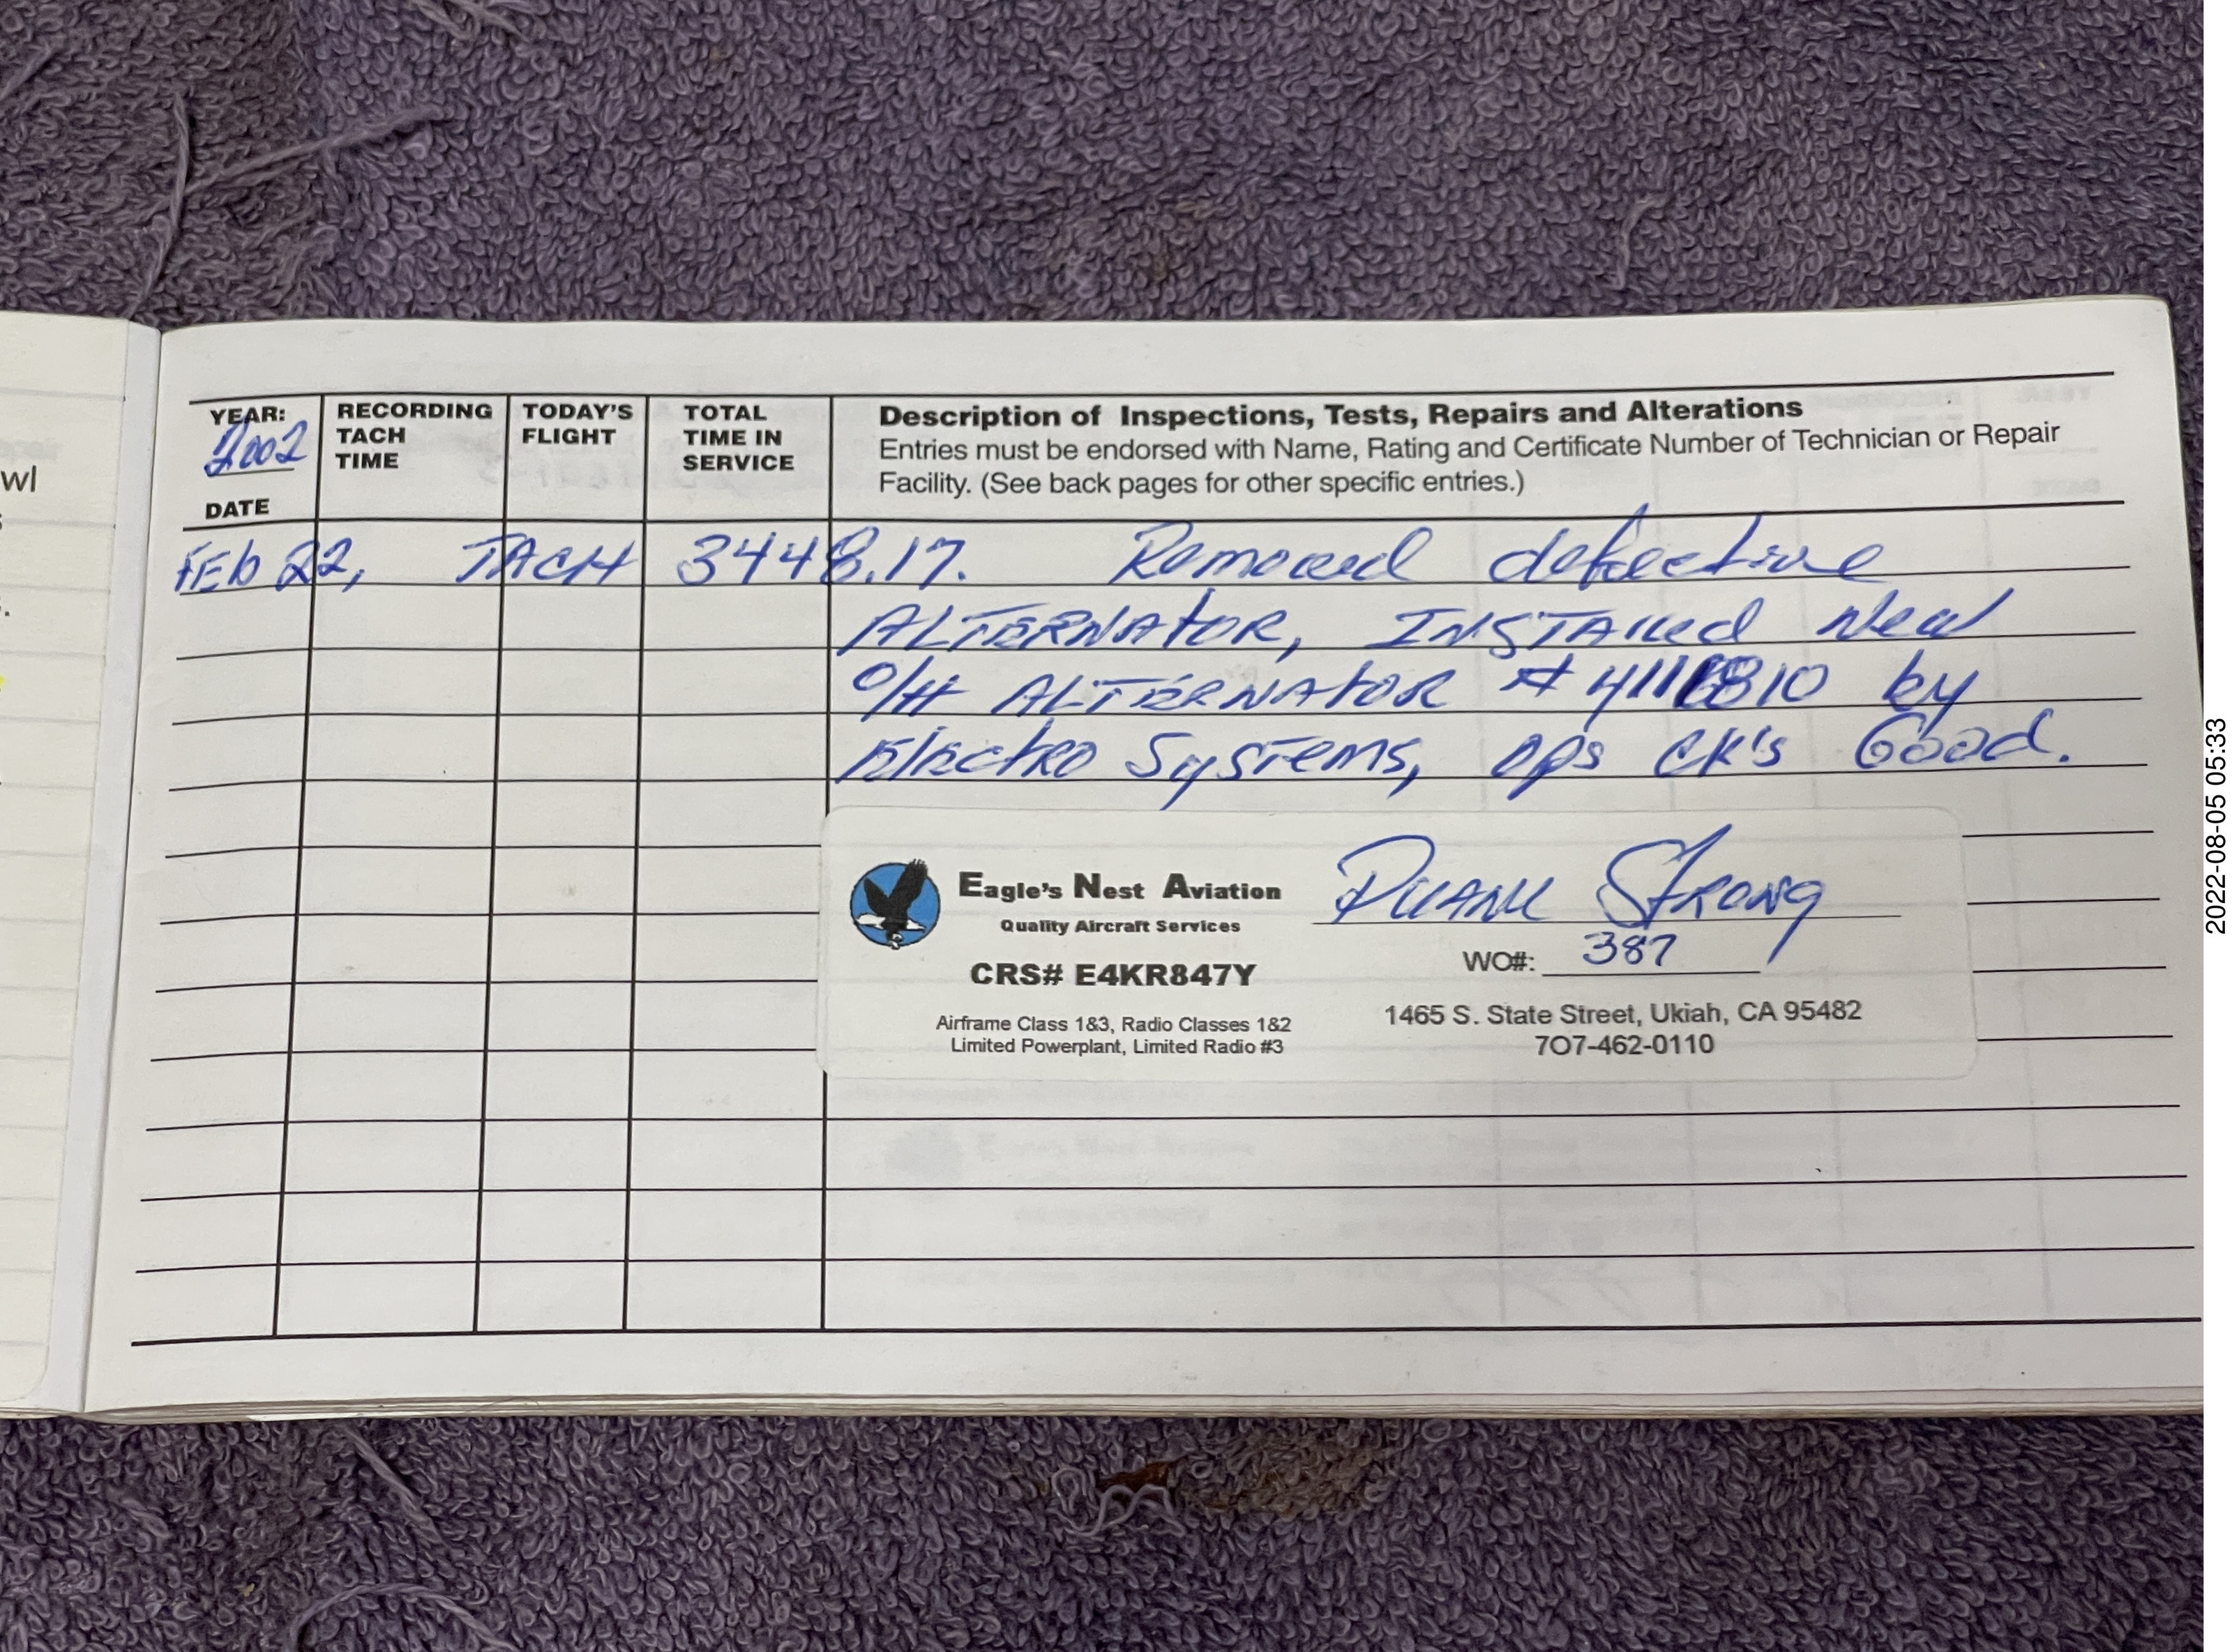 wl
YEAR:
2002
DATE
RECORDING
TACH
TIME
TODAY'S
FLIGHT
TOTAL
TIME IN
SERVICE
Description of Inspections, Tests, Repairs and Alterations
Entries must be endorsed with Name, Rating and Certificate Number of Technician or Repair
Facility. (See back pages for other specific entries.)
FEb 22, TACH 3448.17. Removed defective
ALTERNATOR, INSTAlled New
O/H ALTERNATOR # by
Electro Systems, ops CK's Good.
Eagle's Nest Aviation
Quality Aircraft Services
CRS# E4KR847Y
Airframe Class 1&3, Radio Classes 1&2
Limited Powerplant, Limited Radio #3
DUANE STRONG
WO#: 387
1465 S. State Street, Ukiah, CA 95482
707-462-0110
2022-08-05 05:33